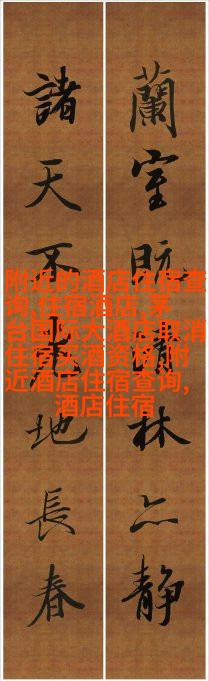 蘭室既林亦静
諸天不地長春
附近的酒店住宿查
询,住宿酒店,茅
台国际大酒店取消
住宿买酒资格,附
近酒店住宿查询,
酒店住宿